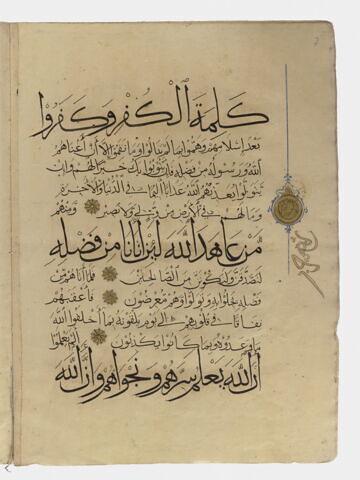 كلمة الكفر وكفروا
بعد إسلامهم وهموا بما لم ينالوا وما نقموا إلا أن أغناهم
الله ورسوله من فضله فإن يتوبوا يك خيرا لهم وإن
يتولوا يعذبهم الله عذابا أليما في الدنيا والآخرة
وما لهم في الأرض من ولي ولا نصير ومنهم
من عاهد الله لئن آتانا من فضله
لنصدقن ولنكونن من الصالحين فلما آتاهم من
فضله بخلوا به وتولوا وهم معرضون فأعقبهم
نفاقا في قلوبهم إلى يوم يلقونه بما أخلفوا الله
ما وعدوه وبما كانوا يكذبون ألم يعلموا
أن الله يعلم سرهم ونجواهم وأن الله